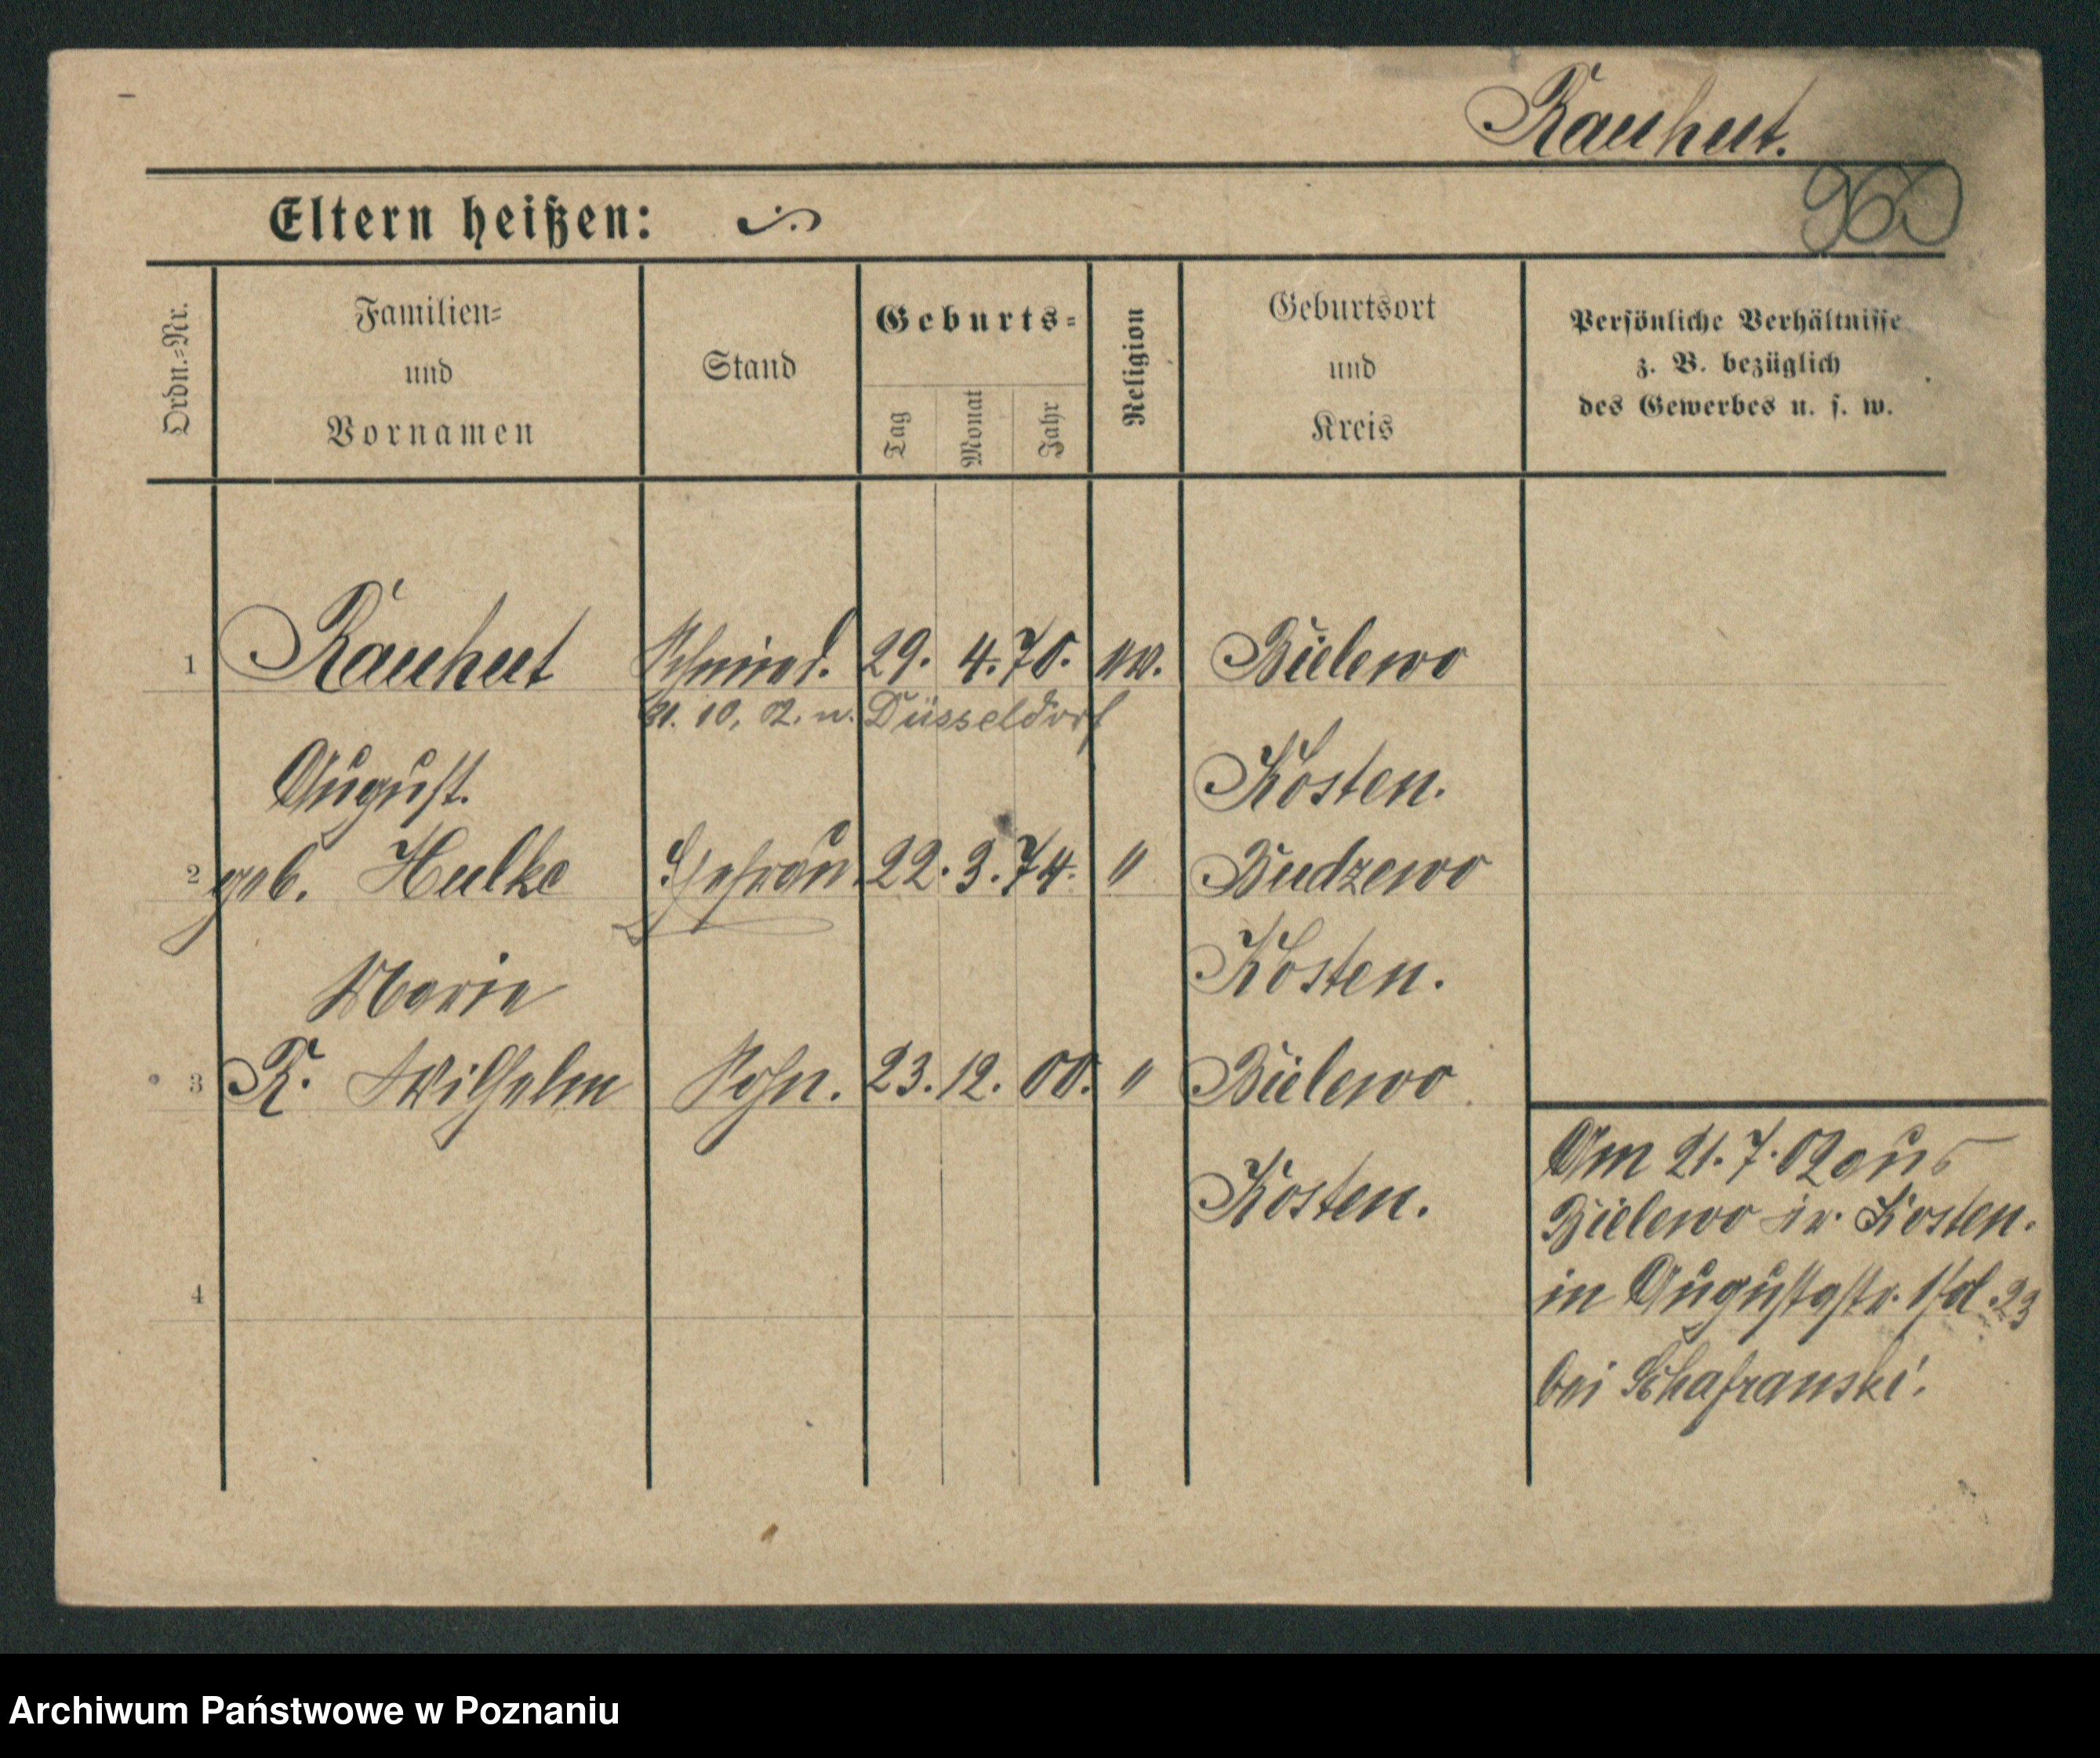 Rauhut.
960
Eltern heißen:
Ordn.-Nr.
Familien-
und
Vornamen
Stand
Geburts-
Tag
Monat
Jahr
Religion
Geburtsort
und
Kreis
Persönliche Verhältnisse
z. B. bezüglich
des Gewerbes u. s. w.
1 Rauhut Schmied. 29. 4. 70. ev. Bielewo
10. 02. n. Düsseldorf
August. Kosten.
2 geb. Hulke Ehefrau 22. 3. 74. " Budzewo
Marie Kosten.
3 R. Wilhelm Sohn. 23. 12. 00. " Bielewo
Kosten.
4
Am 21. 7. 02 aus
Bielewo Kr. Kosten.
in Augustastr. 23
bei Schafranski.
Archiwum Państwowe w Poznaniu